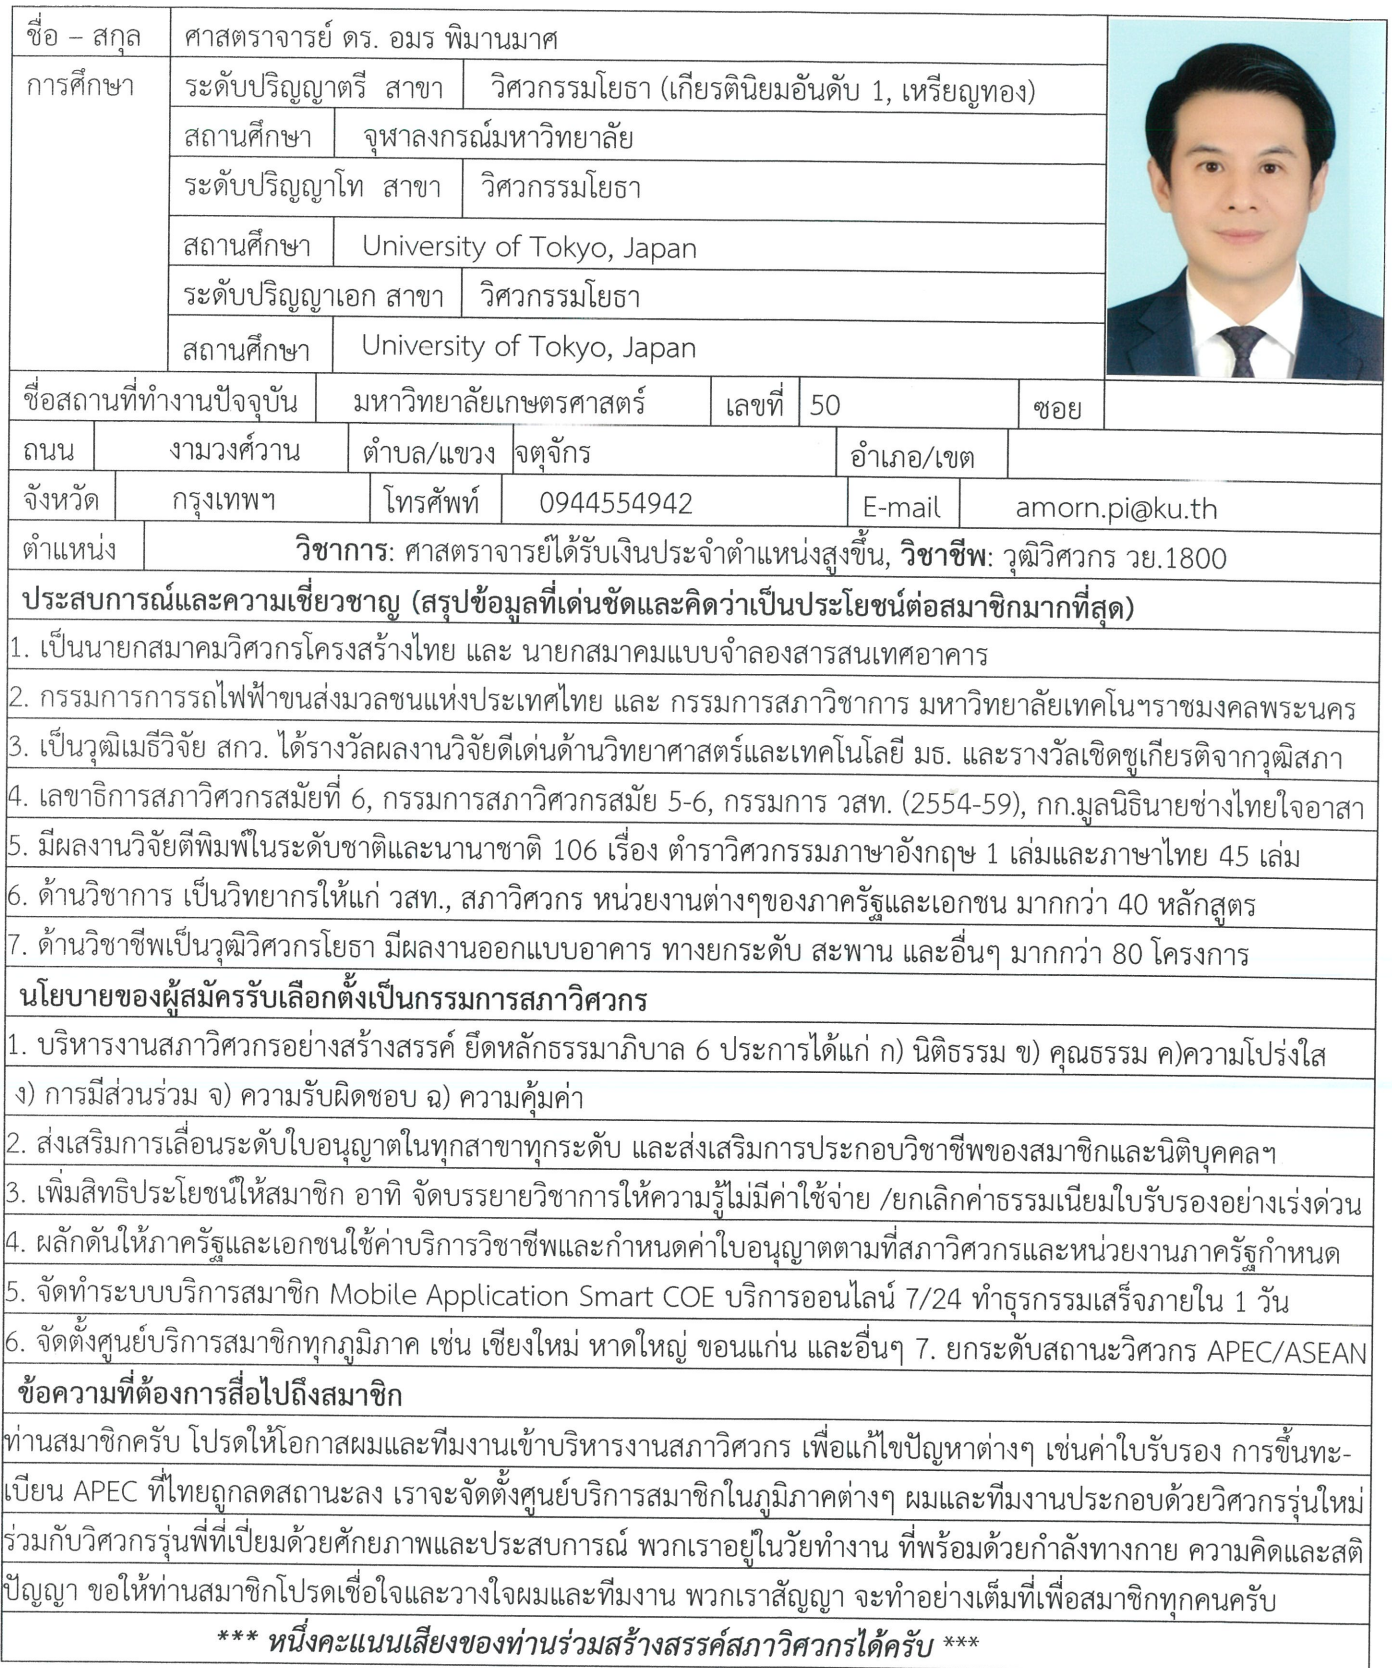 ชื่อ – สกุล ศาสตราจารย์ ดร. อมร พิมานมาศ
การศึกษา ระดับปริญญาตรี สาขา วิศวกรรมโยธา (เกียรตินิยมอันดับ 1, เหรียญทอง)
สถานศึกษา จุฬาลงกรณ์มหาวิทยาลัย
ระดับปริญญาโท สาขา วิศวกรรมโยธา
สถานศึกษา University of Tokyo, Japan
ระดับปริญญาเอก สาขา วิศวกรรมโยธา
สถานศึกษา University of Tokyo, Japan
ชื่อสถานที่ทำงานปัจจุบัน มหาวิทยาลัยเกษตรศาสตร์ เลขที่ 50 ซอย
ถนน งามวงศ์วาน ตำบล/แขวง จตุจักร อำเภอ/เขต
จังหวัด กรุงเทพฯ โทรศัพท์ 0944554942 E-mail amorn.pi@ku.th
ตำแหน่ง วิชาการ: ศาสตราจารย์ได้รับเงินประจำตำแหน่งสูงขึ้น, วิชาชีพ: วุฒิวิศวกร วย.1800
ประสบการณ์และความเชี่ยวชาญ (สรุปข้อมูลที่เด่นชัดและคิดว่าเป็นประโยชน์ต่อสมาชิกมากที่สุด)
1. เป็นนายกสมาคมวิศวกรโครงสร้างไทย และ นายกสมาคมแบบจำลองสารสนเทศอาคาร
2. กรรมการการรถไฟฟ้าขนส่งมวลชนแห่งประเทศไทย และ กรรมการสภาวิชาการ มหาวิทยาลัยเทคโนฯราชมงคลพระนคร
3. เป็นวุฒิเมธีวิจัย สกว. ได้รางวัลผลงานวิจัยดีเด่นด้านวิทยาศาสตร์และเทคโนโลยี มธ. และรางวัลเชิดชูเกียรติจากวุฒิสภา
4. เลขาธิการสภาวิศวกรสมัยที่ 6, กรรมการสภาวิศวกรสมัย 5-6, กรรมการ วสท. (2554-59), กก.มูลนิธินายช่างไทยใจอาสา
5. มีผลงานวิจัยตีพิมพ์ในระดับชาติและนานาชาติ 106 เรื่อง ตำราวิศวกรรมภาษาอังกฤษ 1 เล่มและภาษาไทย 45 เล่ม
6. ด้านวิชาการ เป็นวิทยากรให้แก่ วสท., สภาวิศวกร หน่วยงานต่างๆของภาครัฐและเอกชน มากกว่า 40 หลักสูตร
7. ด้านวิชาชีพเป็นวุฒิวิศวกรโยธา มีผลงานออกแบบอาคาร ทางยกระดับ สะพาน และอื่นๆ มากกว่า 80 โครงการ
นโยบายของผู้สมัครรับเลือกตั้งเป็นกรรมการสภาวิศวกร
1. บริหารงานสภาวิศวกรอย่างสร้างสรรค์ ยึดหลักธรรมาภิบาล 6 ประการได้แก่ ก) นิติธรรม ข) คุณธรรม ค)ความโปร่งใส
ง) การมีส่วนร่วม จ) ความรับผิดชอบ ฉ) ความคุ้มค่า
2. ส่งเสริมการเลื่อนระดับใบอนุญาตในทุกสาขาทุกระดับ และส่งเสริมการประกอบวิชาชีพของสมาชิกและนิติบุคคลฯ
3. เพิ่มสิทธิประโยชน์ให้สมาชิก อาทิ จัดบรรยายวิชาการให้ความรู้ไม่มีค่าใช้จ่าย /ยกเลิกค่าธรรมเนียมใบรับรองอย่างเร่งด่วน
4. ผลักดันให้ภาครัฐและเอกชนใช้ค่าบริการวิชาชีพและกำหนดค่าใบอนุญาตตามที่สภาวิศวกรและหน่วยงานภาครัฐกำหนด
5. จัดทำระบบบริการสมาชิก Mobile Application Smart COE บริการออนไลน์ 7/24 ทำธุรกรรมเสร็จภายใน 1 วัน
6. จัดตั้งศูนย์บริการสมาชิกทุกภูมิภาค เช่น เชียงใหม่ หาดใหญ่ ขอนแก่น และอื่นๆ 7. ยกระดับสถานะวิศวกร APEC/ASEAN
ข้อความที่ต้องการสื่อไปถึงสมาชิก
ท่านสมาชิกครับ โปรดให้โอกาสผมและทีมงานเข้าบริหารงานสภาวิศวกร เพื่อแก้ไขปัญหาต่างๆ เช่นค่าใบรับรอง การขึ้นทะ-
เบียน APEC ที่ไทยถูกลดสถานะลง เราจะจัดตั้งศูนย์บริการสมาชิกในภูมิภาคต่างๆ ผมและทีมงานประกอบด้วยวิศวกรรุ่นใหม่
ร่วมกับวิศวกรรุ่นพี่ที่เปี่ยมด้วยศักยภาพและประสบการณ์ พวกเราอยู่ในวัยทำงาน ที่พร้อมด้วยกำลังทางกาย ความคิดและสติ
ปัญญา ขอให้ท่านสมาชิกโปรดเชื่อใจและวางใจผมและทีมงาน พวกเราสัญญา จะทำอย่างเต็มที่เพื่อสมาชิกทุกคนครับ
*** หนึ่งคะแนนเสียงของท่านร่วมสร้างสรรค์สภาวิศวกรได้ครับ ***